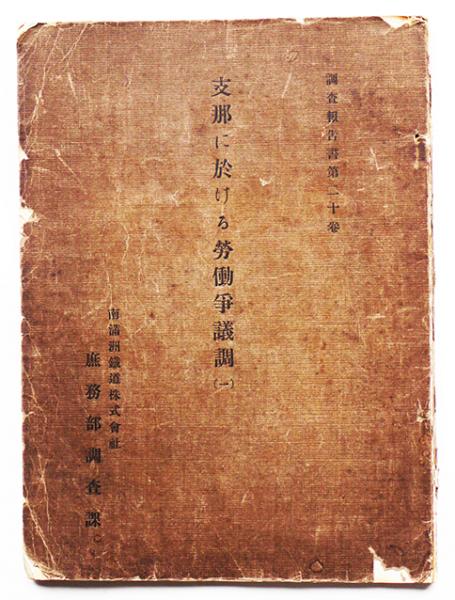 調査報告書第二十卷
支那に於ける勞働爭議調(一)
南滿洲鐵道株式會社
庶務部調査課